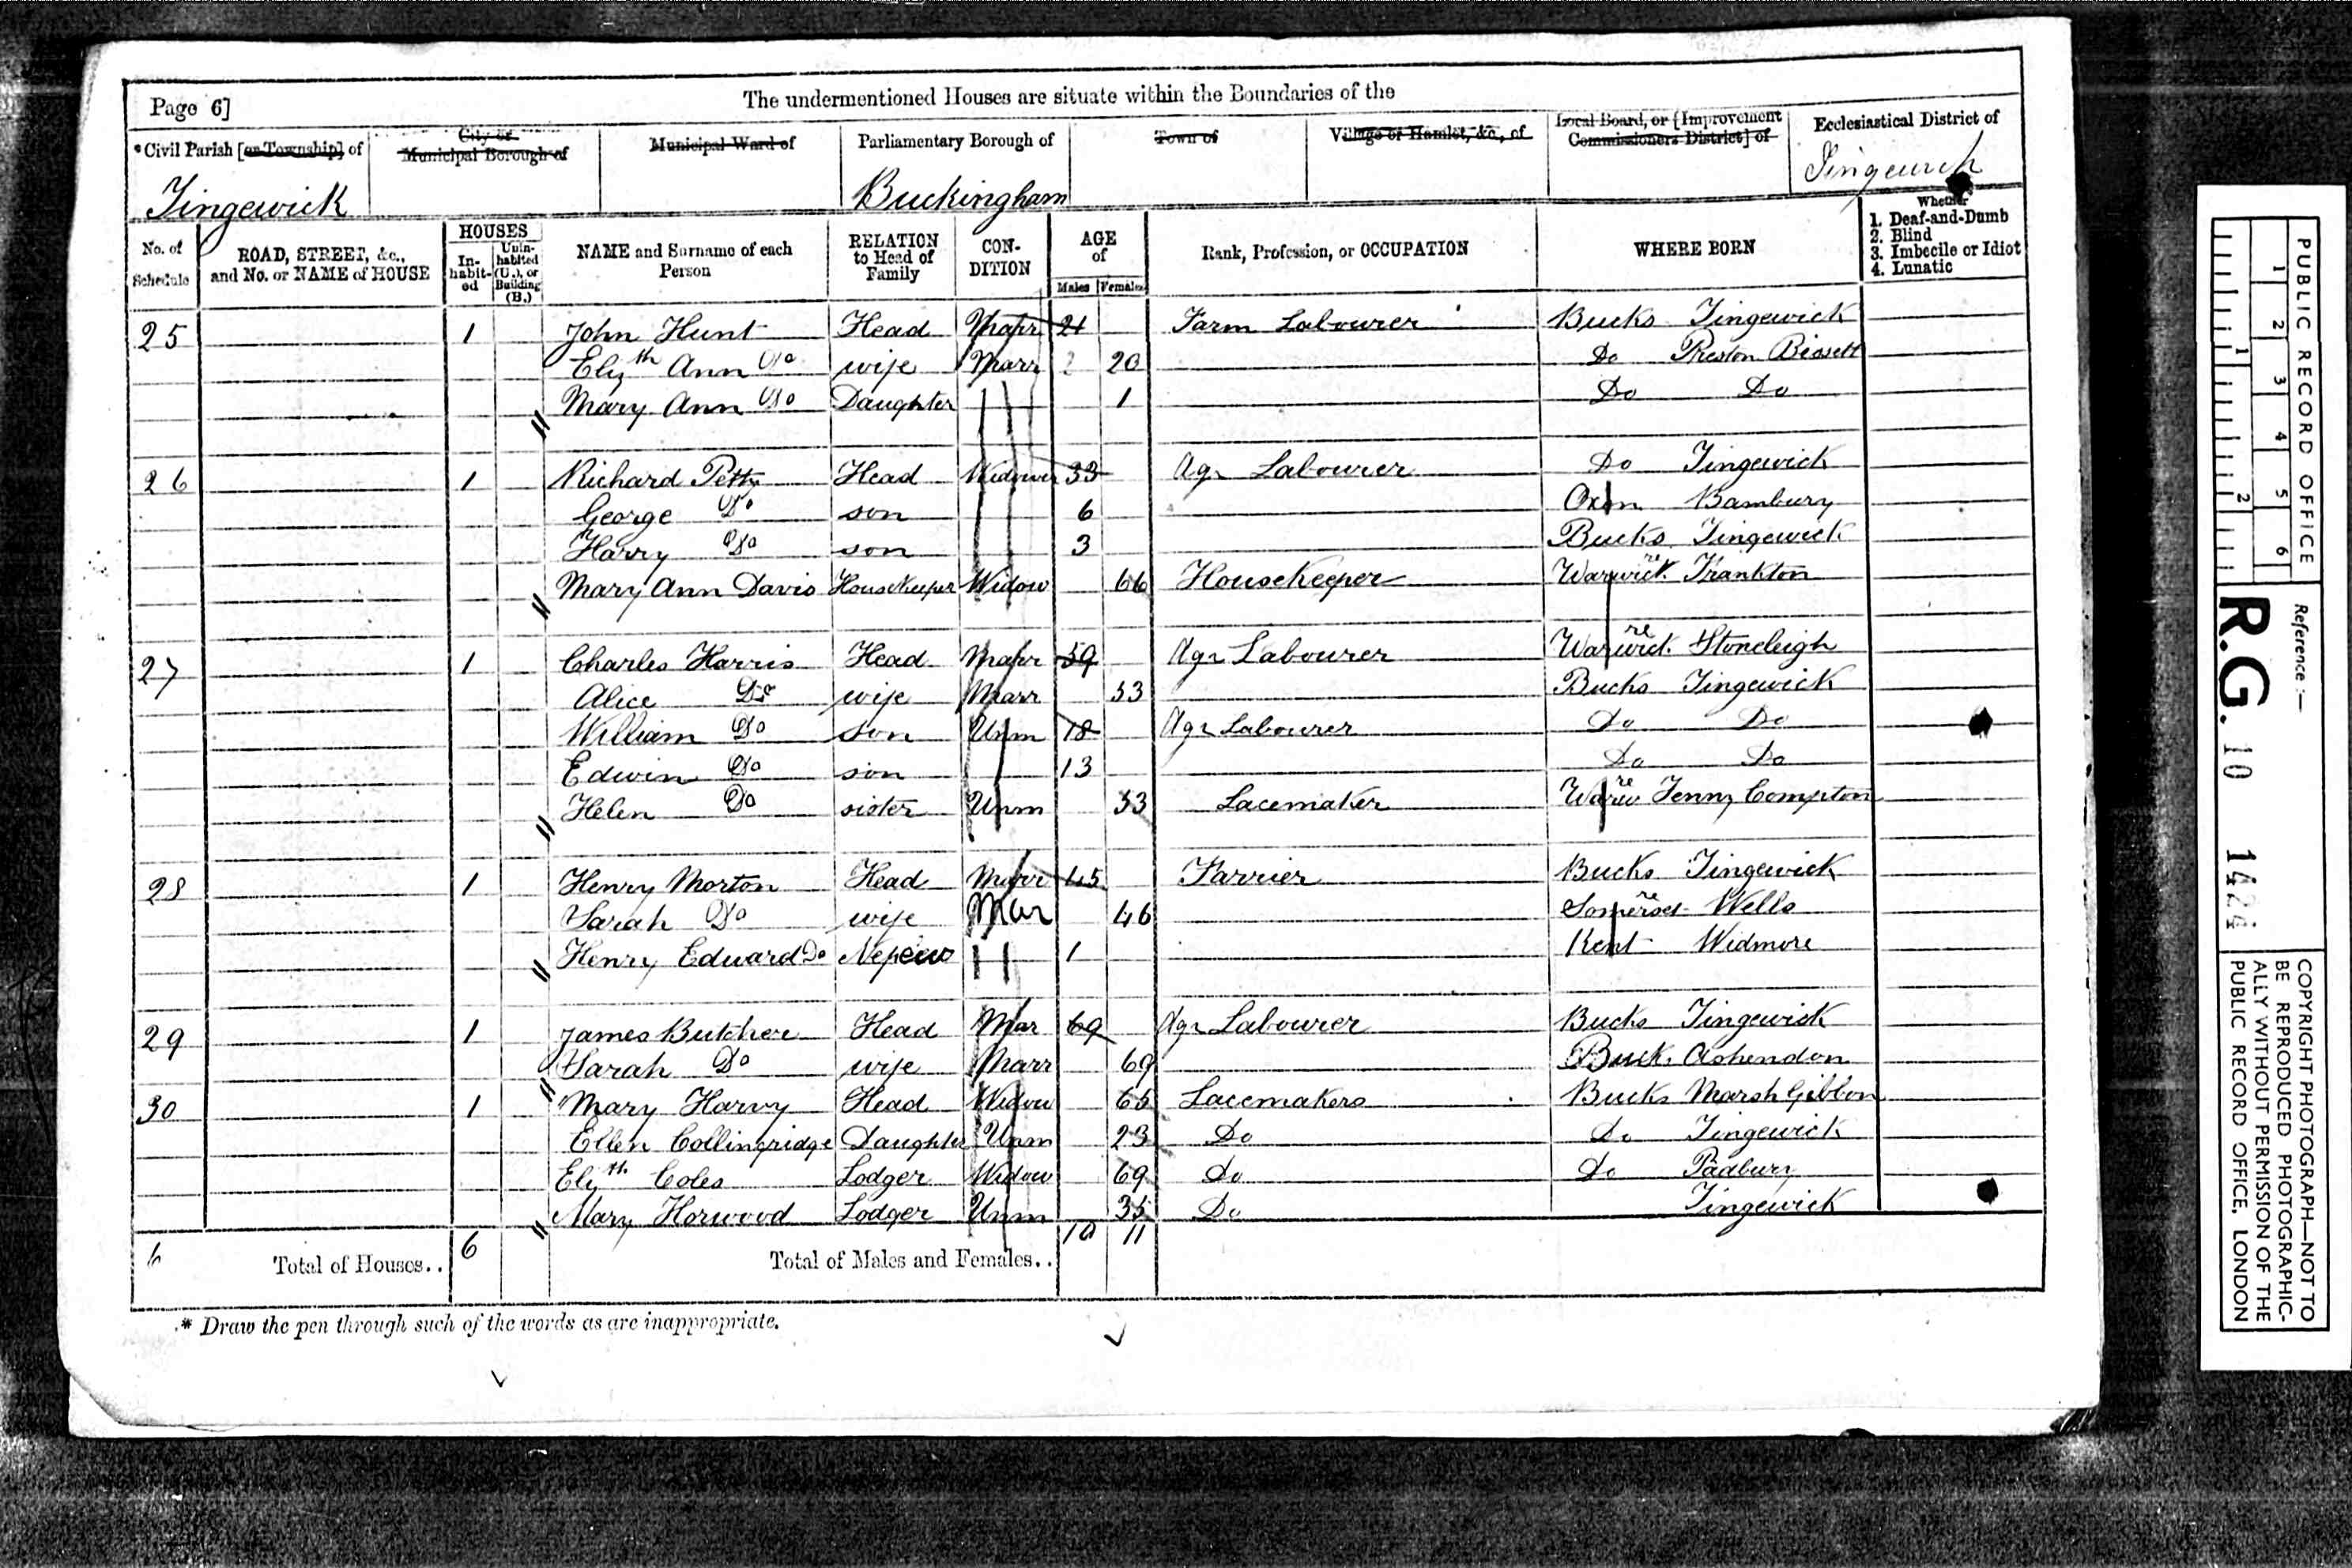 Page 6]
The undermentioned Houses are situate within the Boundaries of the
*Civil Parish [or Township] of
City or Municipal Borough of
Municipal Ward of
Parliamentary Borough of
Town of
Village or Hamlet, &c., of
Local Board, or [Improvement Commissioners District] of
Ecclesiastical District of
Tingewick Buckingham Tingewick
No. of Schedule
ROAD, STREET, &c., and No. or NAME of HOUSE
HOUSES
In-habit-ed
Unin-habited (U.), or Building (B.)
NAME and Surname of each Person
RELATION to Head of Family
CON-DITION
AGE of
Males Females
Rank, Profession, or OCCUPATION
WHERE BORN
Whether
1. Deaf-and-Dumb
2. Blind
3. Imbecile or Idiot
4. Lunatic
25 1 John Hunt Head Marr 21 Farm Labourer Bucks Tingewick
Elizth Ann Do wife Marr 20 Do Preston Bissett
Mary Ann Do Daughter 1 Do Do
26 1 Richard Petty Head Widower 33 Agr Labourer Do Tingewick
George Do son 6 Oxon Bambury
Harry Do son 3 Bucks Tingewick
Mary Ann Davis Housekeeper Widow 66 Housekeeper Warwick re Frankton
27 1 Charles Harris Head Marr 59 Agr Labourer Warwick re Stoneleigh
Alice Do wife Marr 53 Bucks Tingewick
William Do son Unm 18 Agr Labourer Do Do
Edwin Do son 13 Do Do
Helen Do sister Unm 53 Lacemaker Warw re Fenny Compton
28 1 Henry Morton Head Marr 45 Farrier Bucks Tingewick
Sarah Do wife Mar 46 Somerset re Wells
Henry Edward Do Nepew 1 Kent Widmore
29 1 James Butcher Head Mar 69 Agr Labourer Bucks Tingewick
Sarah Do wife Marr 69 Buck Ashendon
30 1 Mary Harvy Head Widow 65 Lacemakers Bucks Marsh Gibbon
Ellen Collingridge Daughter Unm 23 Do Do Tingewick
Elizth Coles Lodger Widow 69 do Do Padbury
Mary Horwood Lodger Unm 35 Do Tingewick
6 Total of Houses.. 6 Total of Males and Females.. 10 11
* Draw the pen through such of the words as are inappropriate.
PUBLIC RECORD OFFICE
1 2 3 4 5 6
1 2
Reference :—
R.G. 10 1424
COPYRIGHT PHOTOGRAPH—NOT TO
BE REPRODUCED PHOTOGRAPHIC-
ALLY WITHOUT PERMISSION OF THE
PUBLIC RECORD OFFICE, LONDON